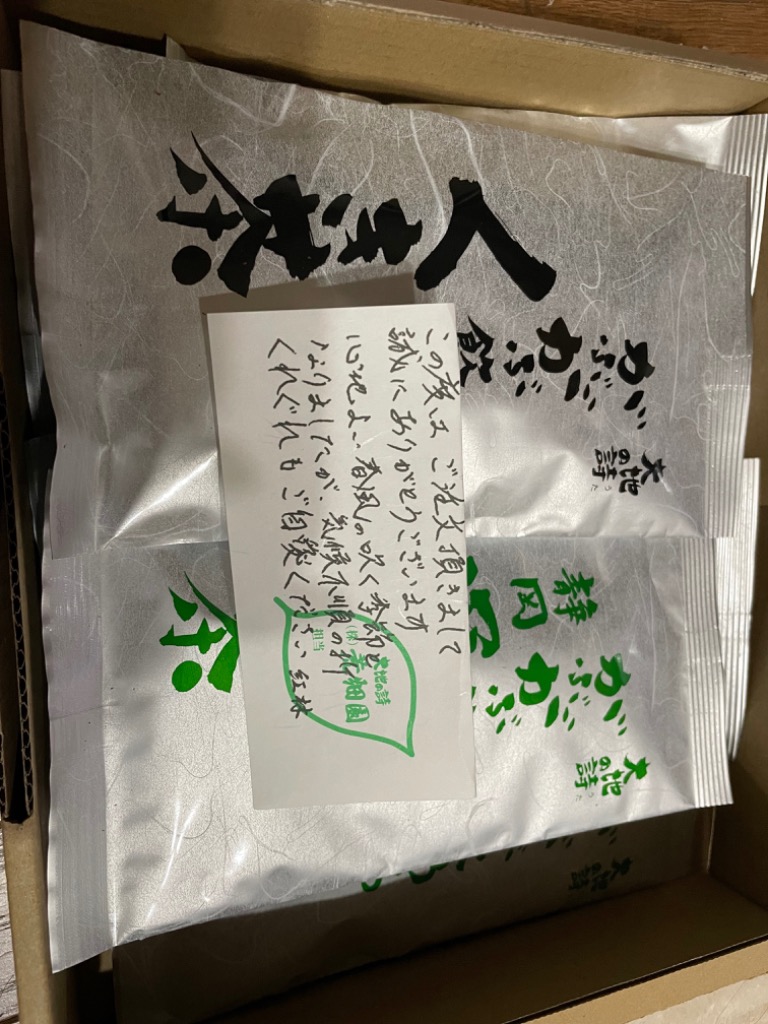 大地の詩
うた
がぶがぶ飲
くき茶
この度は ご注文頂きまして
誠にありがとうございます
心地よい春風の吹く季節と
なりましたが、気候不順の折
くれぐれもご自愛ください 紅林
大地の詩
(株)
担当
大地の詩
うた
がぶがぶ
静岡
茶
大地の詩